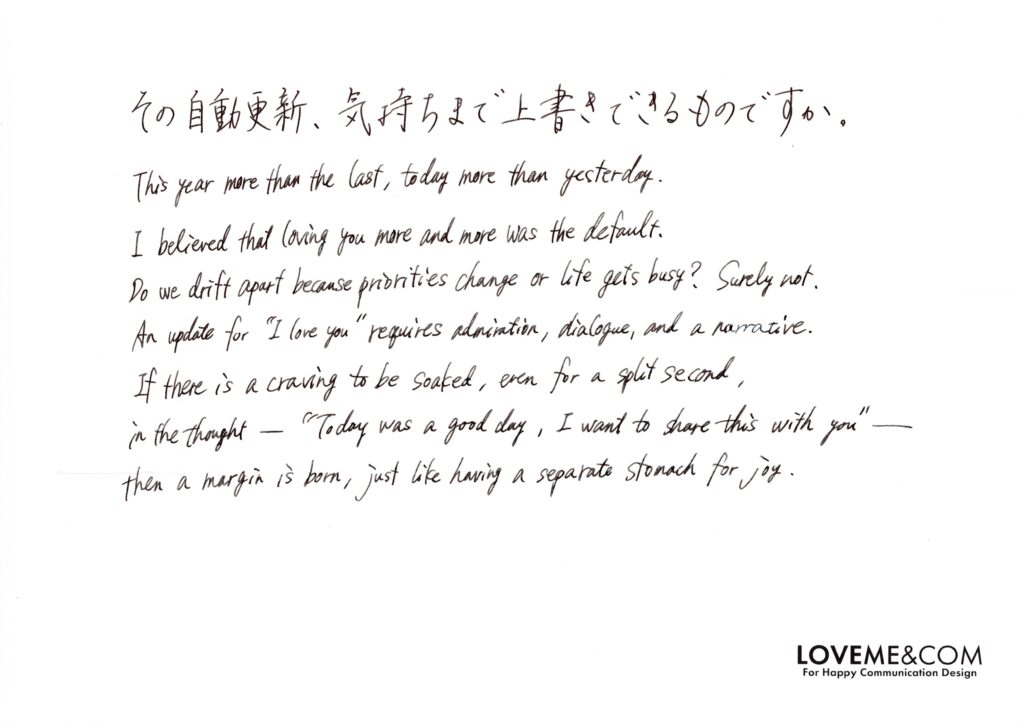 その自動更新、気持ちまで上書きできるものですか。
This year more than the last, today more than yesterday.
I believed that loving you more and more was the default.
Do we drift apart because priorities change or life gets busy? Surely not.
An update for "I love you" requires admiration, dialogue, and a narrative.
If there is a craving to be soaked, even for a split second,
in the thought — "Today was a good day, I want to share this with you" —
then a margin is born, just like having a separate stomach for joy.
LOVEME&COM
For Happy Communication Design